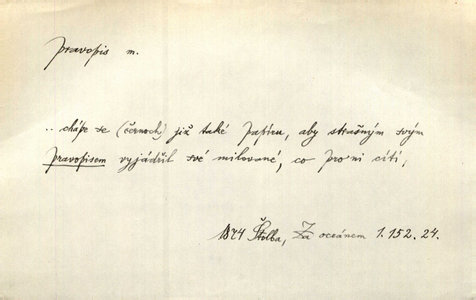 pravopis m.
.. chápe se (černoch) již také papíru, aby strašným svým
pravopisem vyjádřil své milované, co pro ni cítí,
1874 Štolba, Za oceánem 1. 152. 24.